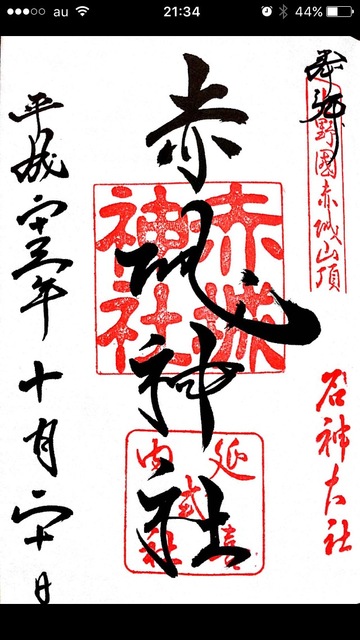 au 21:34 44%
奉拝
上野國赤城山頂
名神大社
赤城神社
赤城神社
延喜式内社
平成二十三年 十月二十日